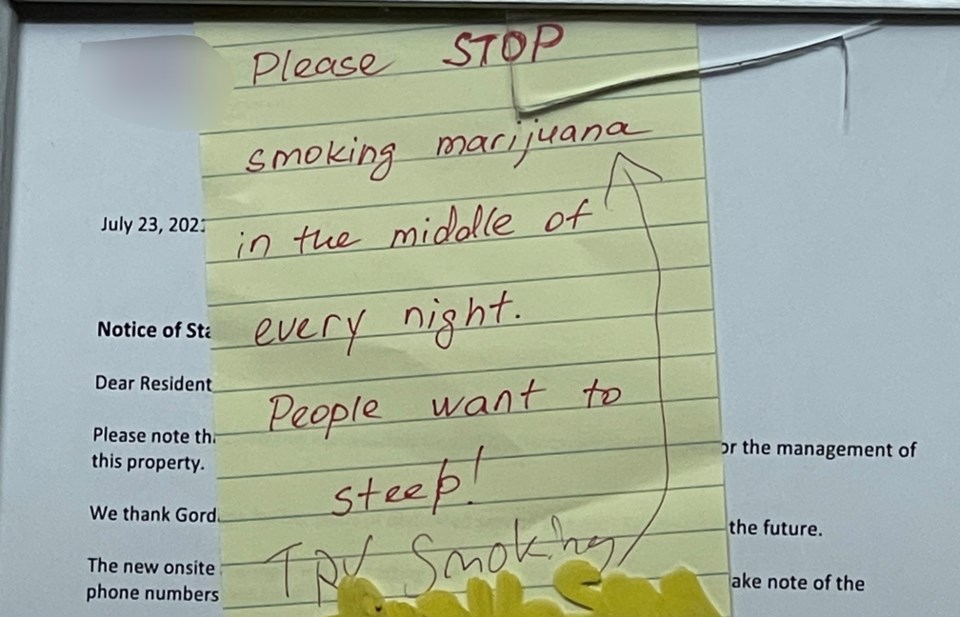 Please STOP
smoking marijuana
in the middle of
every night.
People want to
steep!
TRY Smoking
July 23, 202
Notice of Sta
Dear Resident
Please note th
or the management of
this property.
We thank Gord
the future.
The new onsite
ake note of the
phone numbers